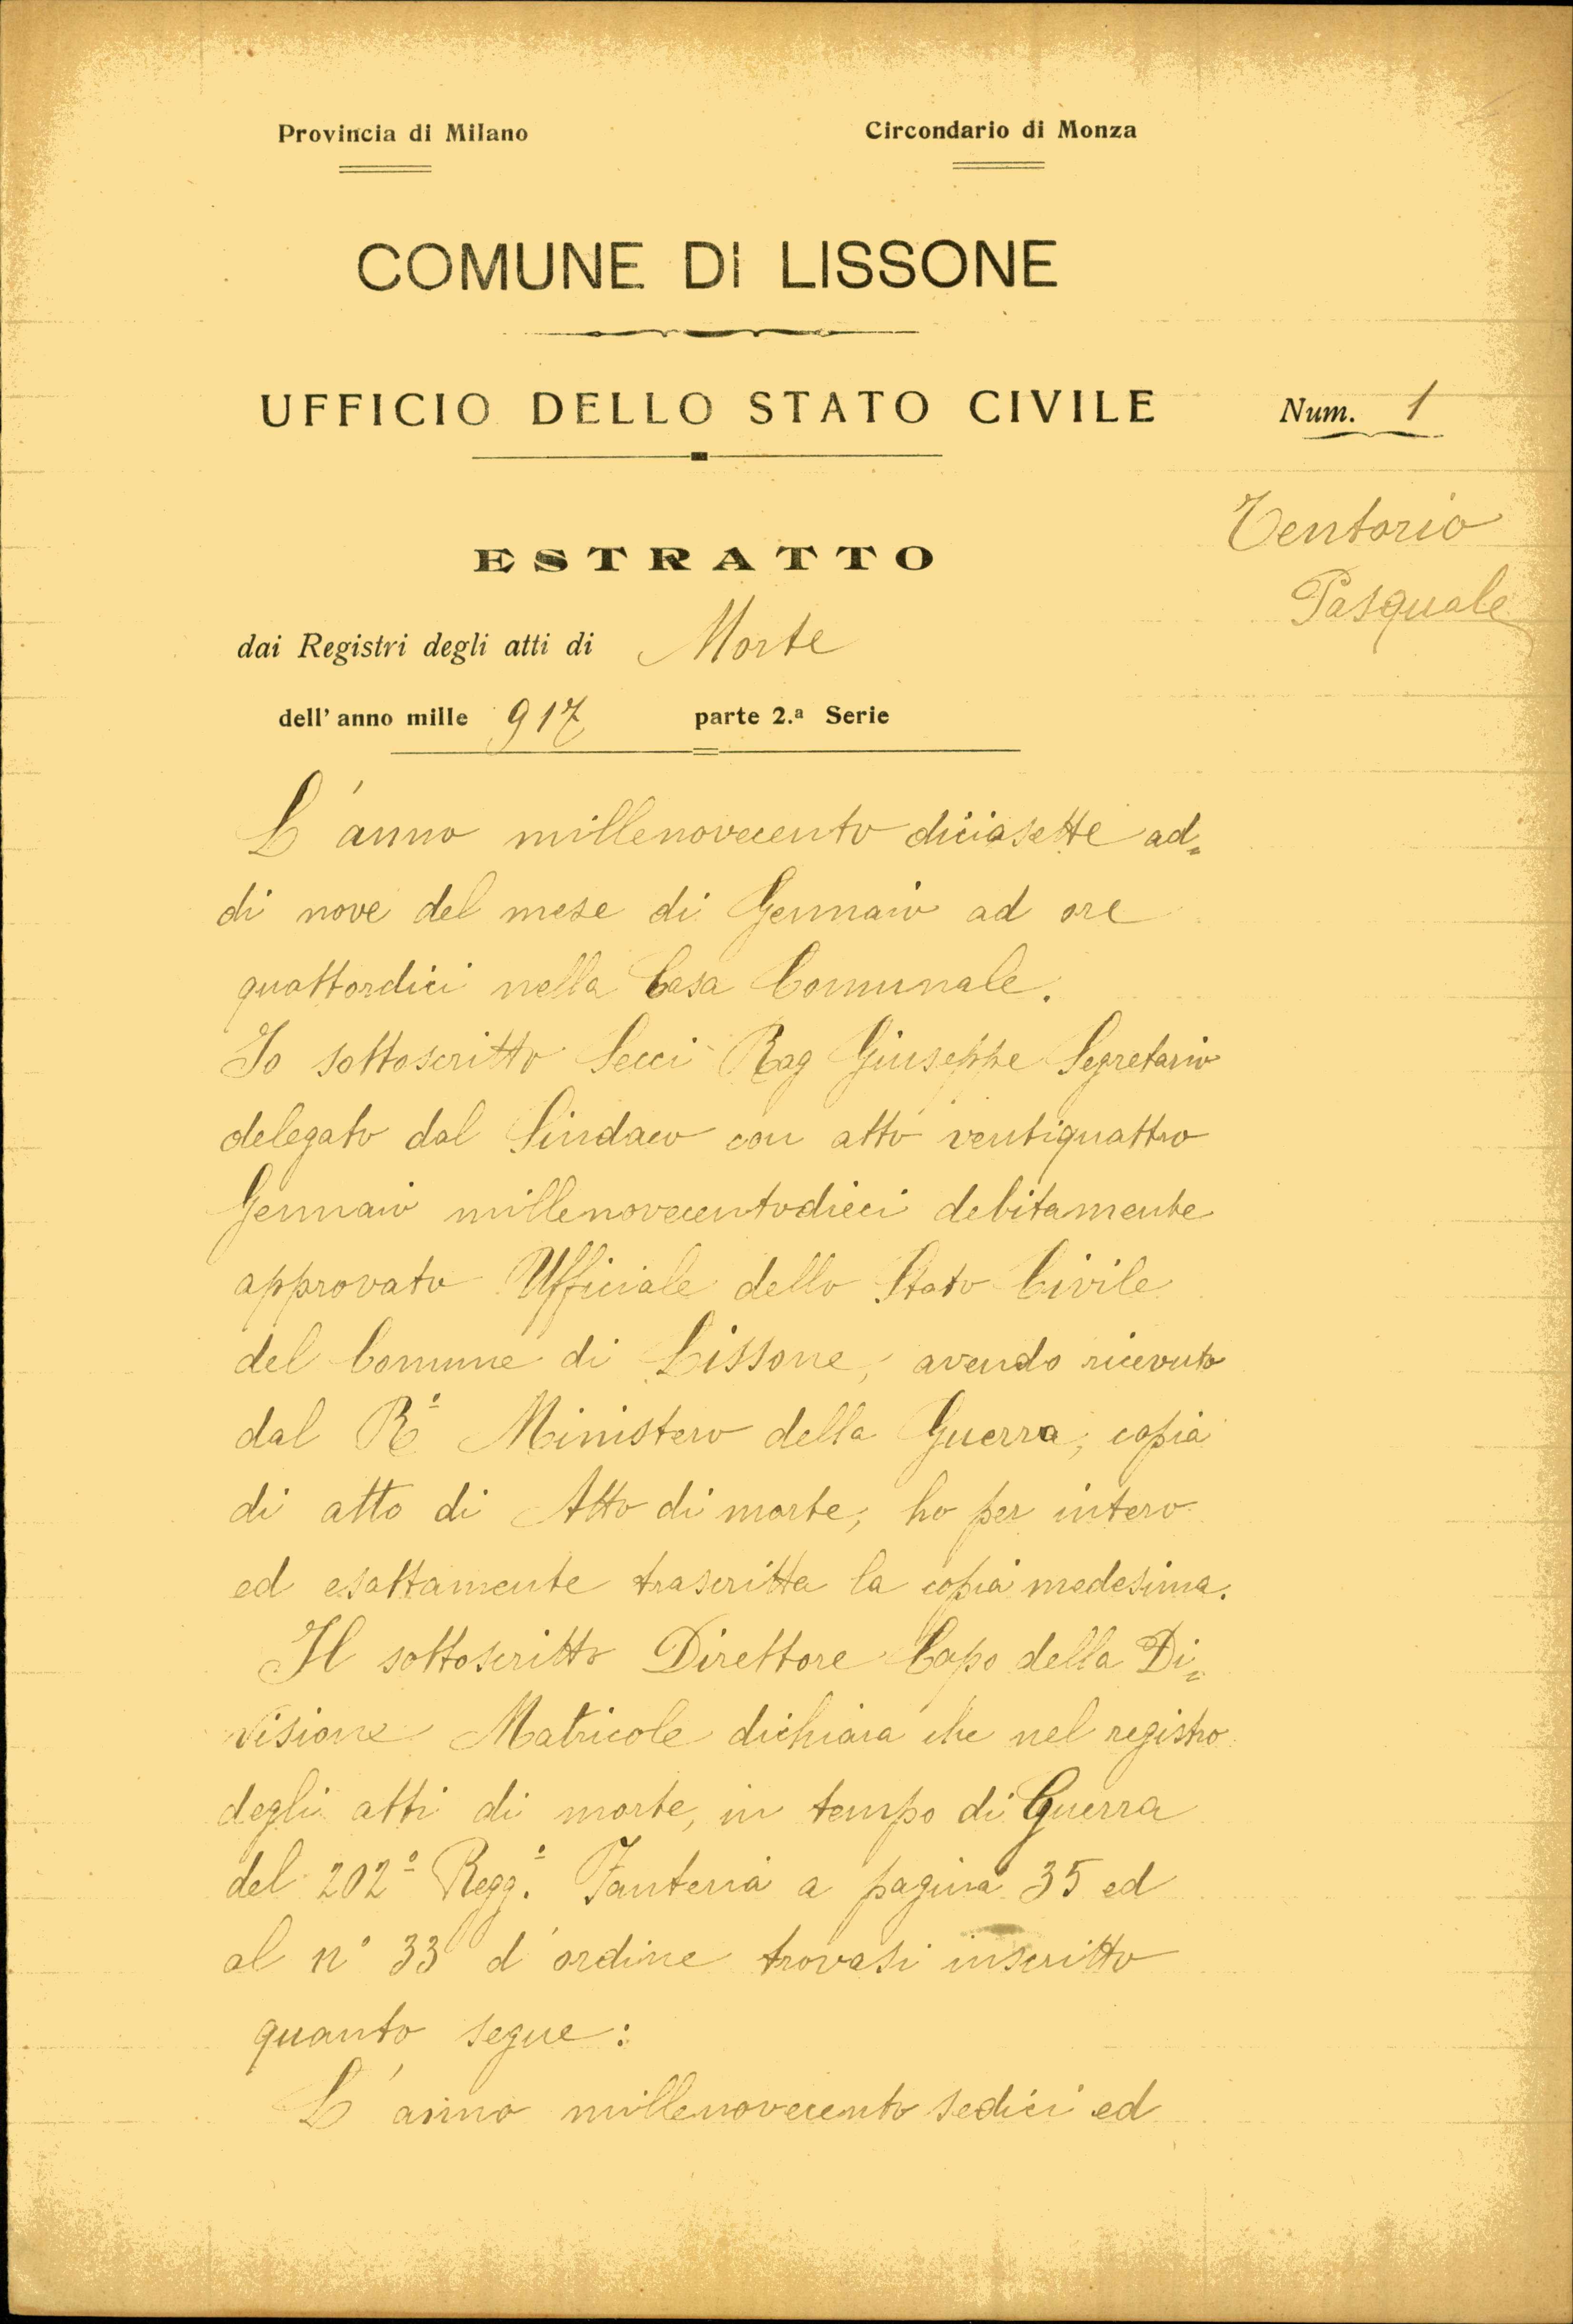 Provincia di Milano
Circondario di Monza
COMUNE DI LISSONE
UFFICIO DELLO STATO CIVILE
Num. 1
Tentorio
Pasquale
ESTRATTO
dai Registri degli atti di Morte
dell' anno mille 917 parte 2.ª Serie
L'anno millenovecento diciasette ad=
di nove del mese di Gennaio ad ore
quattordici nella Casa Comunale.
Io sottoscritto Secci Rag Giuseppe Segretario
delegato dal Sindaco con atto ventiquattro
Gennaio millenovecentodieci debitamente
approvato Ufficiale dello Stato Civile
del Comune di Lissone, avendo ricevuto
dal R.º Ministero della Guerra, copia
di atto di Atto di morte, ho per intero
ed esattamente trascritta la copia medesima.
Il sottoscritto Direttore Capo della Di=
visione Matricole dichiara che nel registro
degli atti di morte, in tempo di Guerra
del 202º Regg.º Fanteria a pagina 35 ed
al n° 33 d'ordine trovasi inscritto
quanto segue:
L'anno millenovecento sedici ed